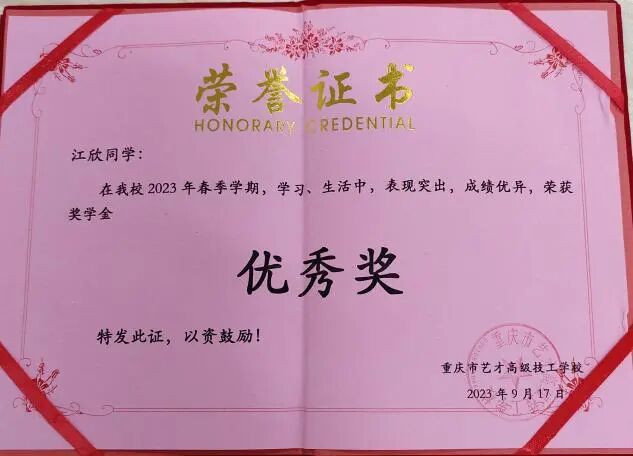 荣誉证书
HONORARY CREDENTIAL
江欣同学：
在我校 2023 年春季学期，学习、生活中，表现突出，成绩优异，荣获
奖学金
优秀奖
特发此证，以资鼓励！
重庆市艺才高级技工学校
2023 年 9 月 17 日
重庆市艺